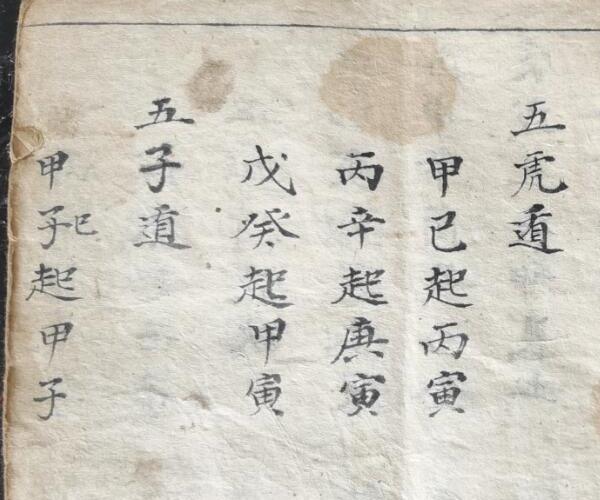 五虎遁
甲己起丙寅
丙辛起庚寅
戊癸起甲寅
五子道
甲子己起甲子